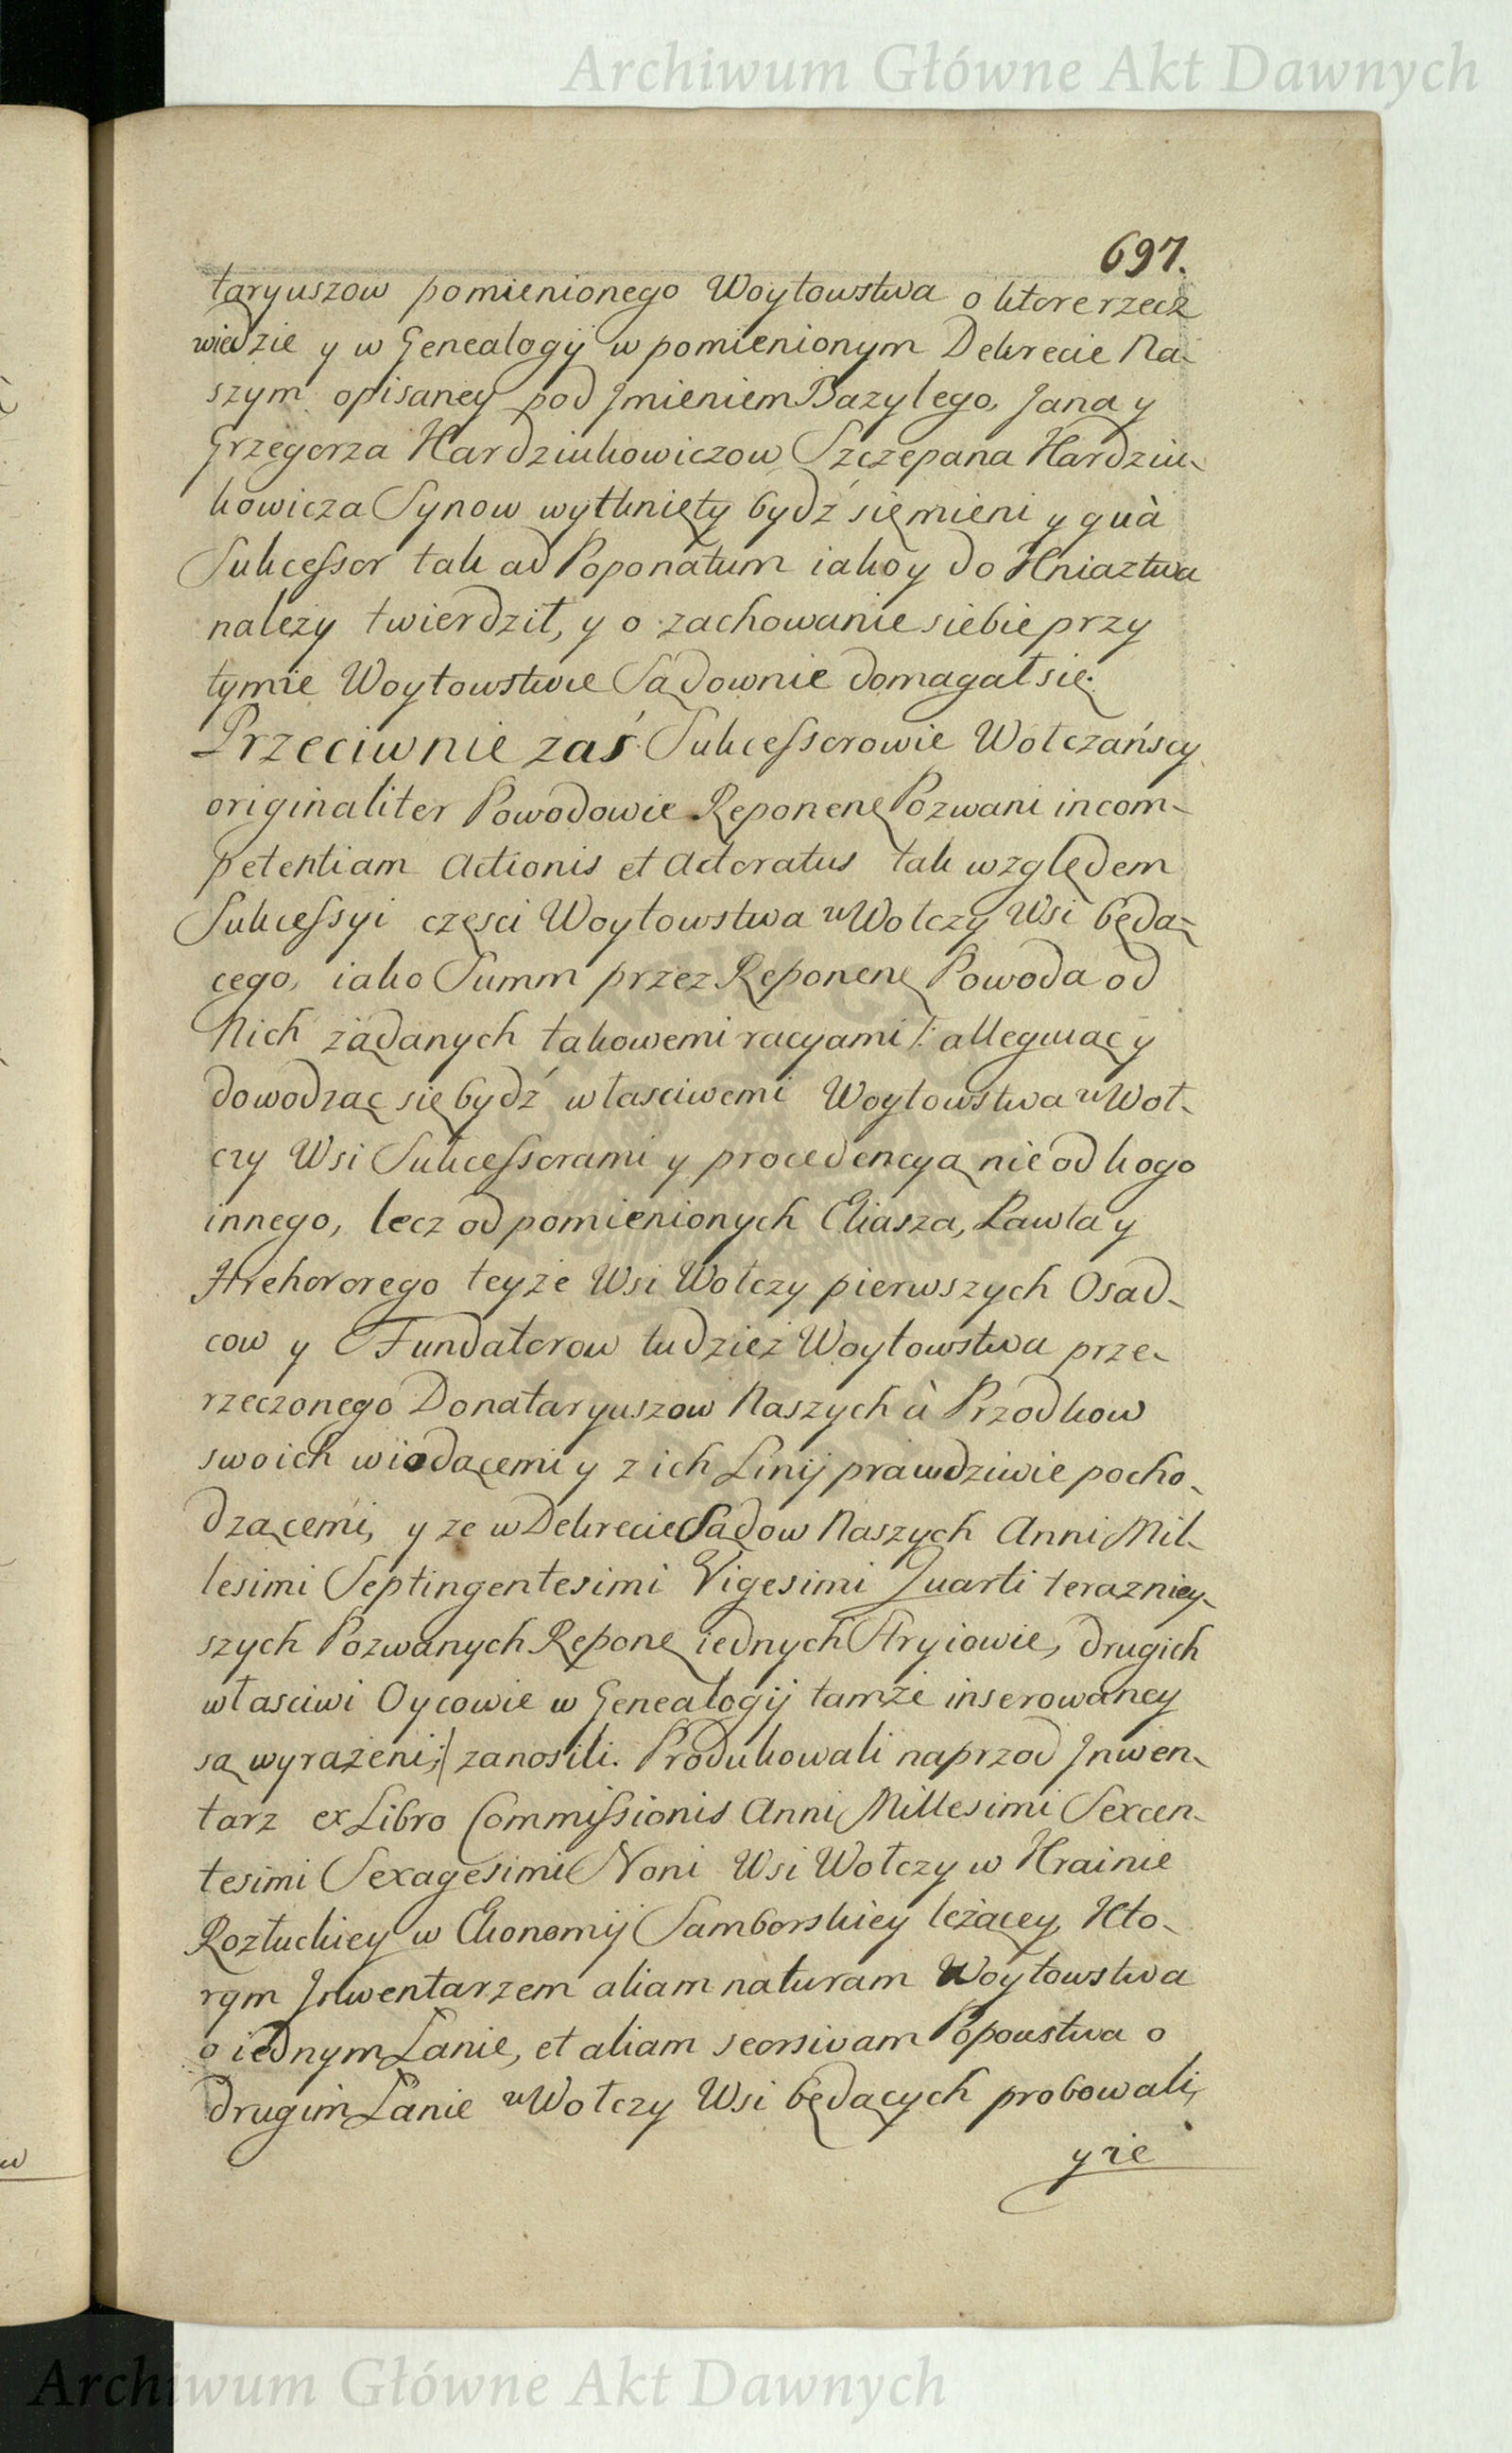 Archiwum Główne Akt Dawnych
697.
taryuszow pomienionego Woytowstwa o ktore rzecz
wiedzie y w Genealogij w pomienionym Dekrecie Na-
szym opisaney pod Jmieniem Bazylego, Jana y
Grzegorza Hardziukowiczow Szczepana Hardziu-
kowicza Synow wytknięty bydź się mieni y quà
Sukcessor tak ad Poponatum iako y do Kniaztwa
nalezy twierdził, y o zachowanie siebie przy
tymie Woytowstwie Sądownie domagał się.
Przeciwnie zaś Sukcessorowie Wołczańscy
originaliter Powodowie Reponenę Pozwani incom-
petentiam Actionis et Actoratus tak względem
Sukcessyi częsci Woytowstwa w Wołczy Wsi będą-
cego, iako Summ przez Reponenę Powoda od
Nich żądanych takowemi racyami /: alleguiąc y
dowodząc się bydź własciwemi Woytowstwa w Woł-
czy Wsi Sukcessorami y procedencyą nie od kogo
innego, lecz od pomienionych Eliasza, Pawła y
Hrehororego teyże Wsi Wołczy pierwszych Osad-
cow y Fundatorow tudzież Woytowstwa prze-
rzeczonego Donataryuszow Naszych à Przodkow
swoich wiodącemi y z ich Linij prawdziwie pocho-
dzącemi, y ze w Dekrecie Sądow Naszych Anni Mil-
lesimi Septingentesimi Vigesimi Quarti terazniey-
szych Pozwanych Reponę iednych Stryiowie, drugich
własciwi Oycowie w Genealogij tamże inserowaney
są wyrażeni :/ zanosili. Produkowali naprzod Jnwen-
tarz ex Libro Commissionis Anni Millesimi Sexcen-
tesimi Sexagesimi Noni Wsi Wołczy w Krainie
Rozłuckiey w Ekonomij Samborskiey leżącey, Kto-
rym Jnwentarzem aliam naturam Woytowstwa
o iednym Łanie, et aliam seorsivam Popowstwa o
drugim Łanie w Wołczy Wsi będących probowali,
y że
Archiwum Główne Akt Dawnych